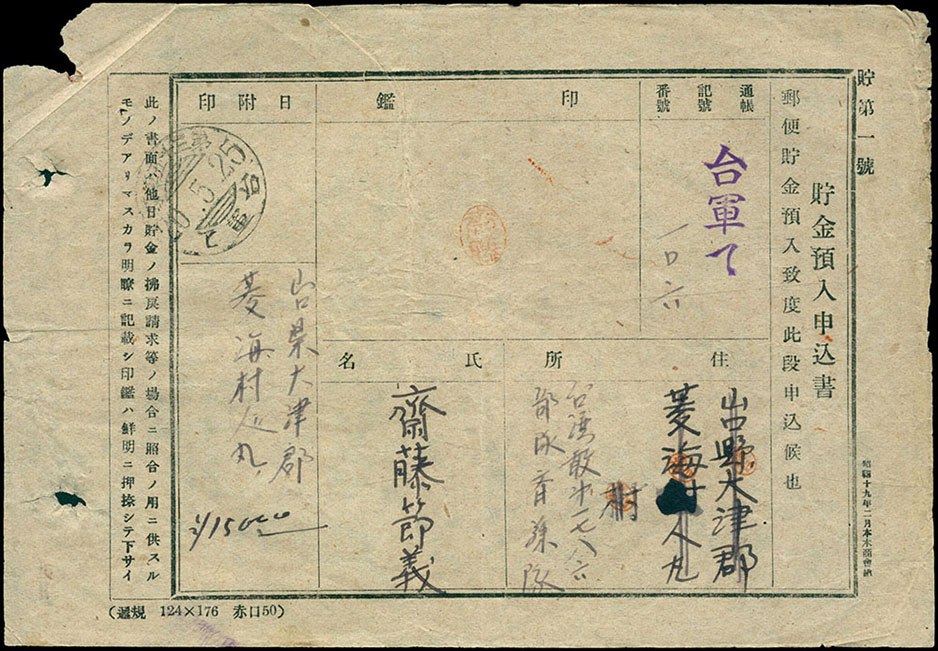 貯第一號
貯金預入申込書
郵便貯金預入致度此段申込候也
昭和十九年二月本木商會納
通帳
記號
番號
台軍て
一〇六
印鑑
日附印
5 25
住所
山口縣大津郡
菱海村人丸
村
台湾
氏名
齋藤節義
山口県大津郡
菱海村人丸
此ノ書面ハ他日貯金ノ拂戻請求等ノ場合ニ照合ノ用ニ供スル
モノデアリマスカラ明瞭ニ記載シ印鑑ハ鮮明ニ押捺シテ下サイ
(遞規 124×176 赤口50)